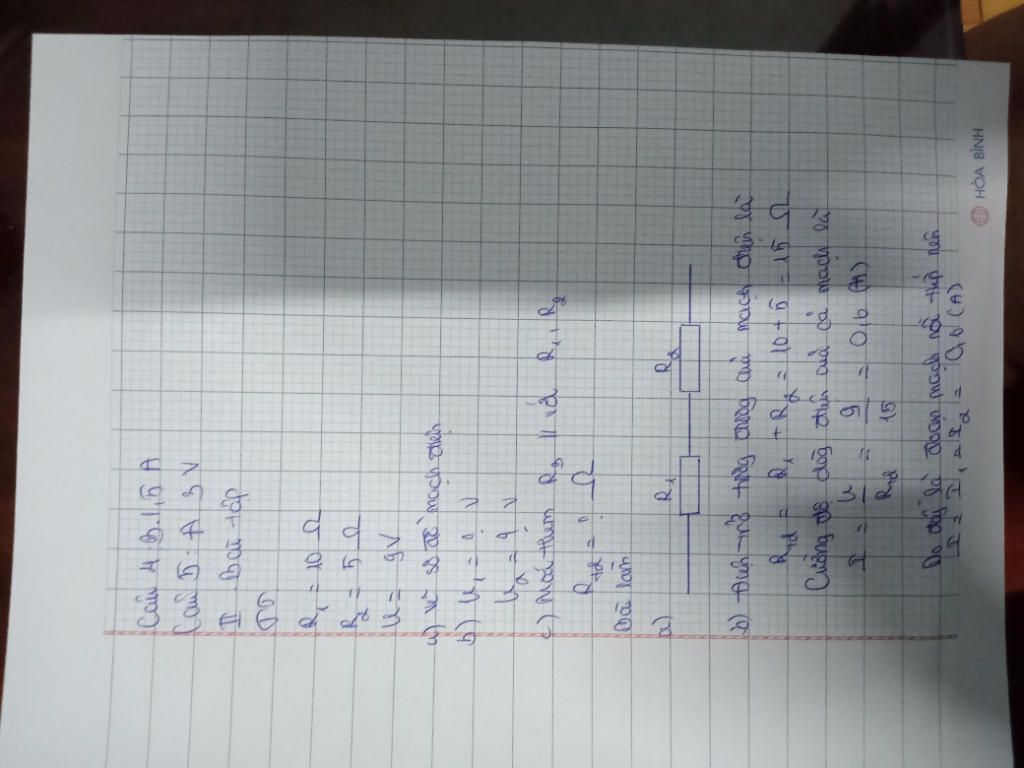 Câu 4: B. 1,5 A
Câu 5: A 3 V
II Bài tập
TT
R1 = 10 Ω
R2 = 5 Ω
U = 9V
a) vẽ sơ đồ mạch điện
b) U1 = ? V
U2 = ? V
c) Mắc thêm R3 // với R1, R2
Rtđ = ? Ω
Bài làm
a)
R1 R2
b) Điện trở tương đương của mạch điện là
Rtđ = R1 + R2 = 10 + 5 = 15 Ω
Cường độ dòng điện của cả mạch là
I = U / Rtđ = 9 / 15 = 0,6 (A)
Do đây là đoạn mạch nối tiếp nên
I = I1 = I2 = 0,6 (A)
HÒA BÌNH